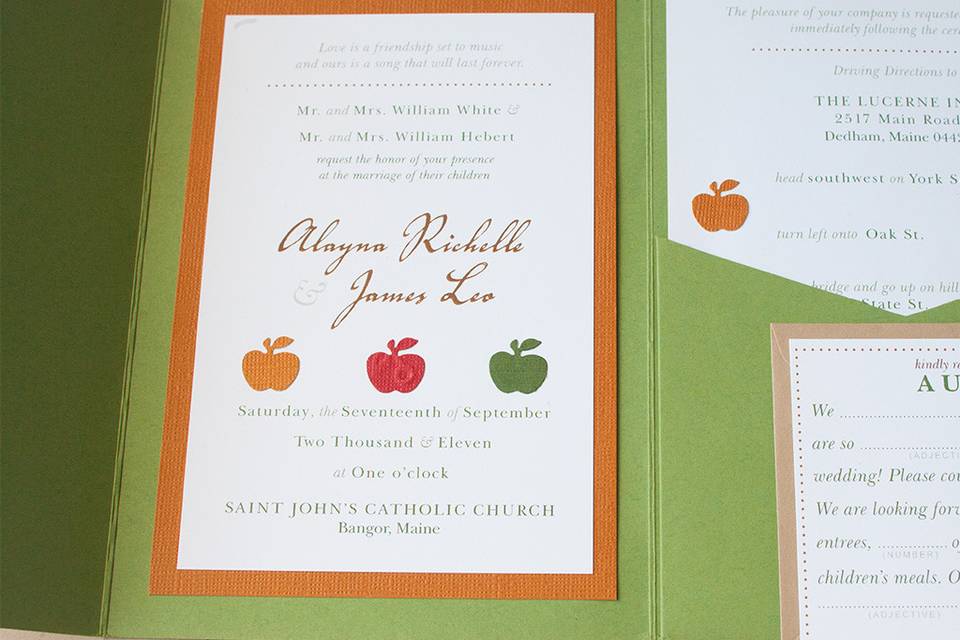 Love is a friendship set to music
and ours is a song that will last forever.
Mr. and Mrs. William White &
Mr. and Mrs. William Hebert
request the honor of your presence
at the marriage of their children
Alayna Richelle
& James Leo
Saturday, the Seventeenth of September
Two Thousand & Eleven
at One o'clock
SAINT JOHN'S CATHOLIC CHURCH
Bangor, Maine
The pleasure of your company is requested
immediately following the
Driving Directions to
THE LUCERNE
2517 Main Road
Dedham, Maine
head southwest on York
turn left onto Oak St.
bridge and go up on hill
State St.
kindly
We
are so
(ADJECTIVE)
wedding! Please
We are looking
entrees,
(NUMBER)
children's meals.
(ADJECTIVE)